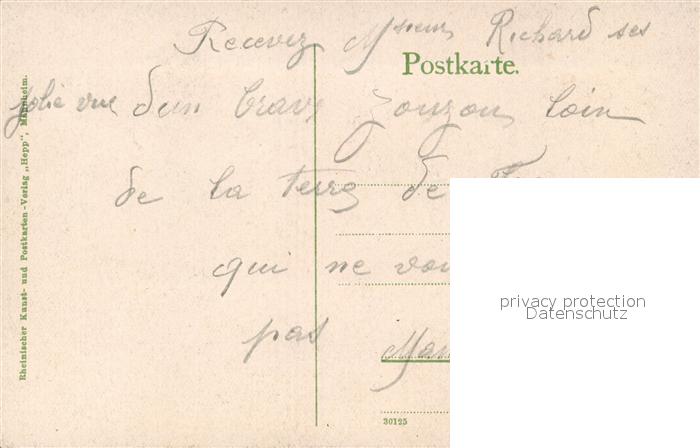 Recevez Msieur Richard ses
Postkarte.
jolie vue d'un brave zouzou loin
de la terre de
qui ne vou
pas
Rheinischer Kunst- und Postkarten-Verlag „Hepp", Mannheim.
30125
privacy protection
Datenschutz